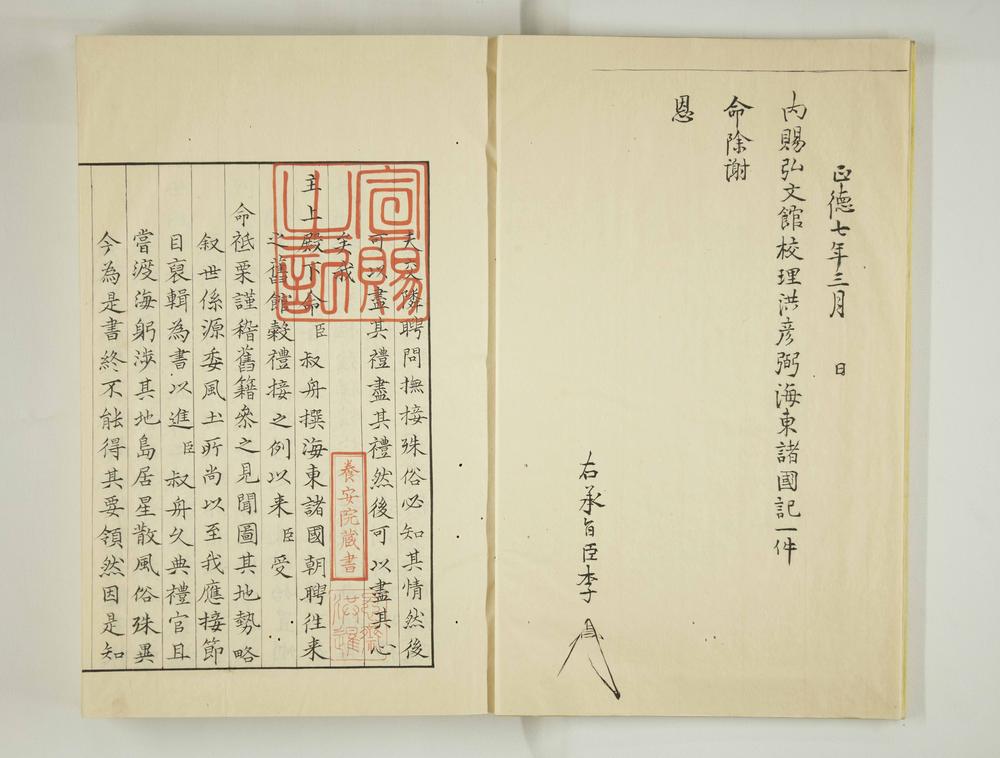 正德七年三月 日
内賜弘文館校理洪彦弼海東諸國記一件
命除謝
恩
右承旨臣李
夫交隣聘問撫接殊俗必知其情然後
可以盡其禮盡其禮然後可以盡其心
矣我
主上殿下命臣叔舟撰海東諸國朝聘往来
之舊館穀禮接之例以来臣受
命祗栗謹稽舊籍叅之見聞圖其地勢略
叙世係源委風土所尚以至我應接節
目裒輯為書以進臣叔舟久典禮官且
嘗渡海躬涉其地島居星散風俗殊異
今為是書終不能得其要領然因是知
宣賜之記
養安院蔵書